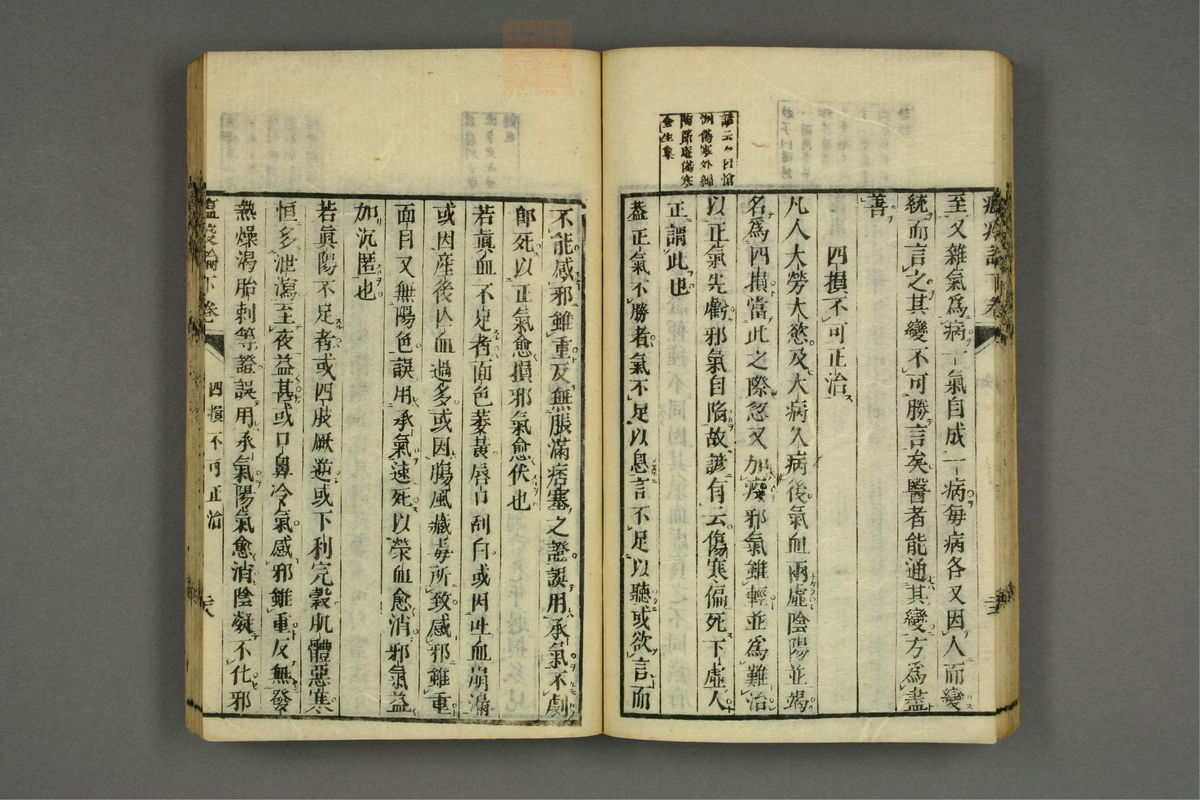 至又雜氣為病一氣自成一病每病各又因人而變
統而言之其變不可勝言矣醫者能通其變方為盡
善
四損不可正治
凡人大勞大慾及大病久病後氣血兩虛陰陽並竭
名為四損當此之際忽又加疫邪氣雖輕並為難治
以正氣先虧邪氣自陷故諺有云傷寒偏死下虛人
正謂此也
蓋正氣不勝者氣不足以息言不足以聽或欲言而
不能感邪雖重反無脹滿痞塞之證誤用承氣不劇
即死以正氣愈損邪氣愈伏也
若眞血不足者面色萎黃唇口刮白或因吐血崩漏
或因産後亡血過多或因腸風藏毒所致感邪雖重
面目又無陽色誤用承氣速死以榮血愈消邪氣益
加沉匿也
若眞陽不足者或四肢厥逆或下利完穀肌體惡寒
恒多泄瀉至夜益甚或口鼻冷氣感邪雖重反無發
熱燥渴胎刺等證誤用承氣陽氣愈消陰凝不化邪
下卷
四損不可正治